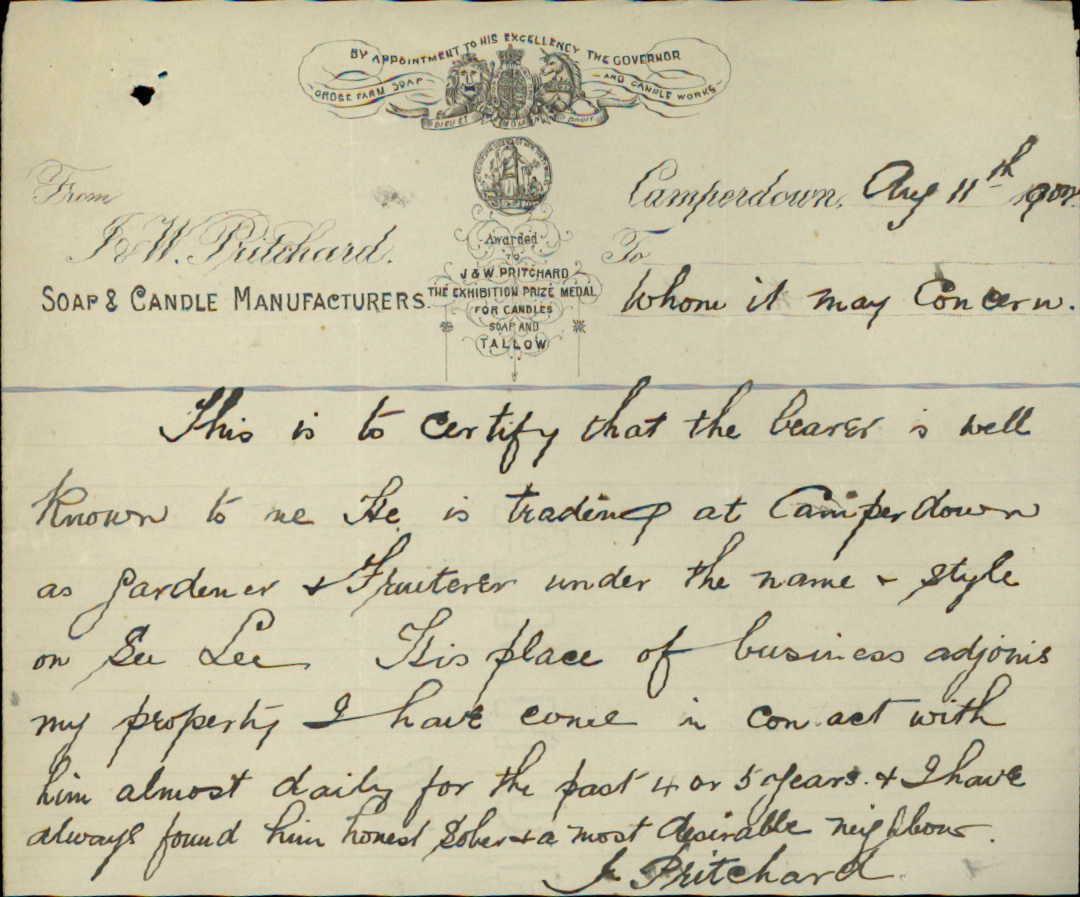 BY APPOINTMENT TO HIS EXCELLENCY THE GOVERNOR
GROSE FARM SOAP AND CANDLE WORKS
DIEU ET MON DROIT
From
J & W. Pritchard.
SOAP & CANDLE MANUFACTURERS.
Awarded
TO
J & W. PRITCHARD
THE EXHIBITION PRIZE MEDAL
FOR CANDLES
SOAP AND
TALLOW
Camperdown, Aug 11th
To
Whom it may Concern.
This is to certify that the bearer is well
Known to me He is trading at Camperdown
as gardener & Fruiterer under the name & style
on See Lee. His place of business adjoins
my property I have come in conact with
him almost daily for the past 4 or 5 years. & I have
always found him honest sober & a most desirable neighbour.
J Pritchard.